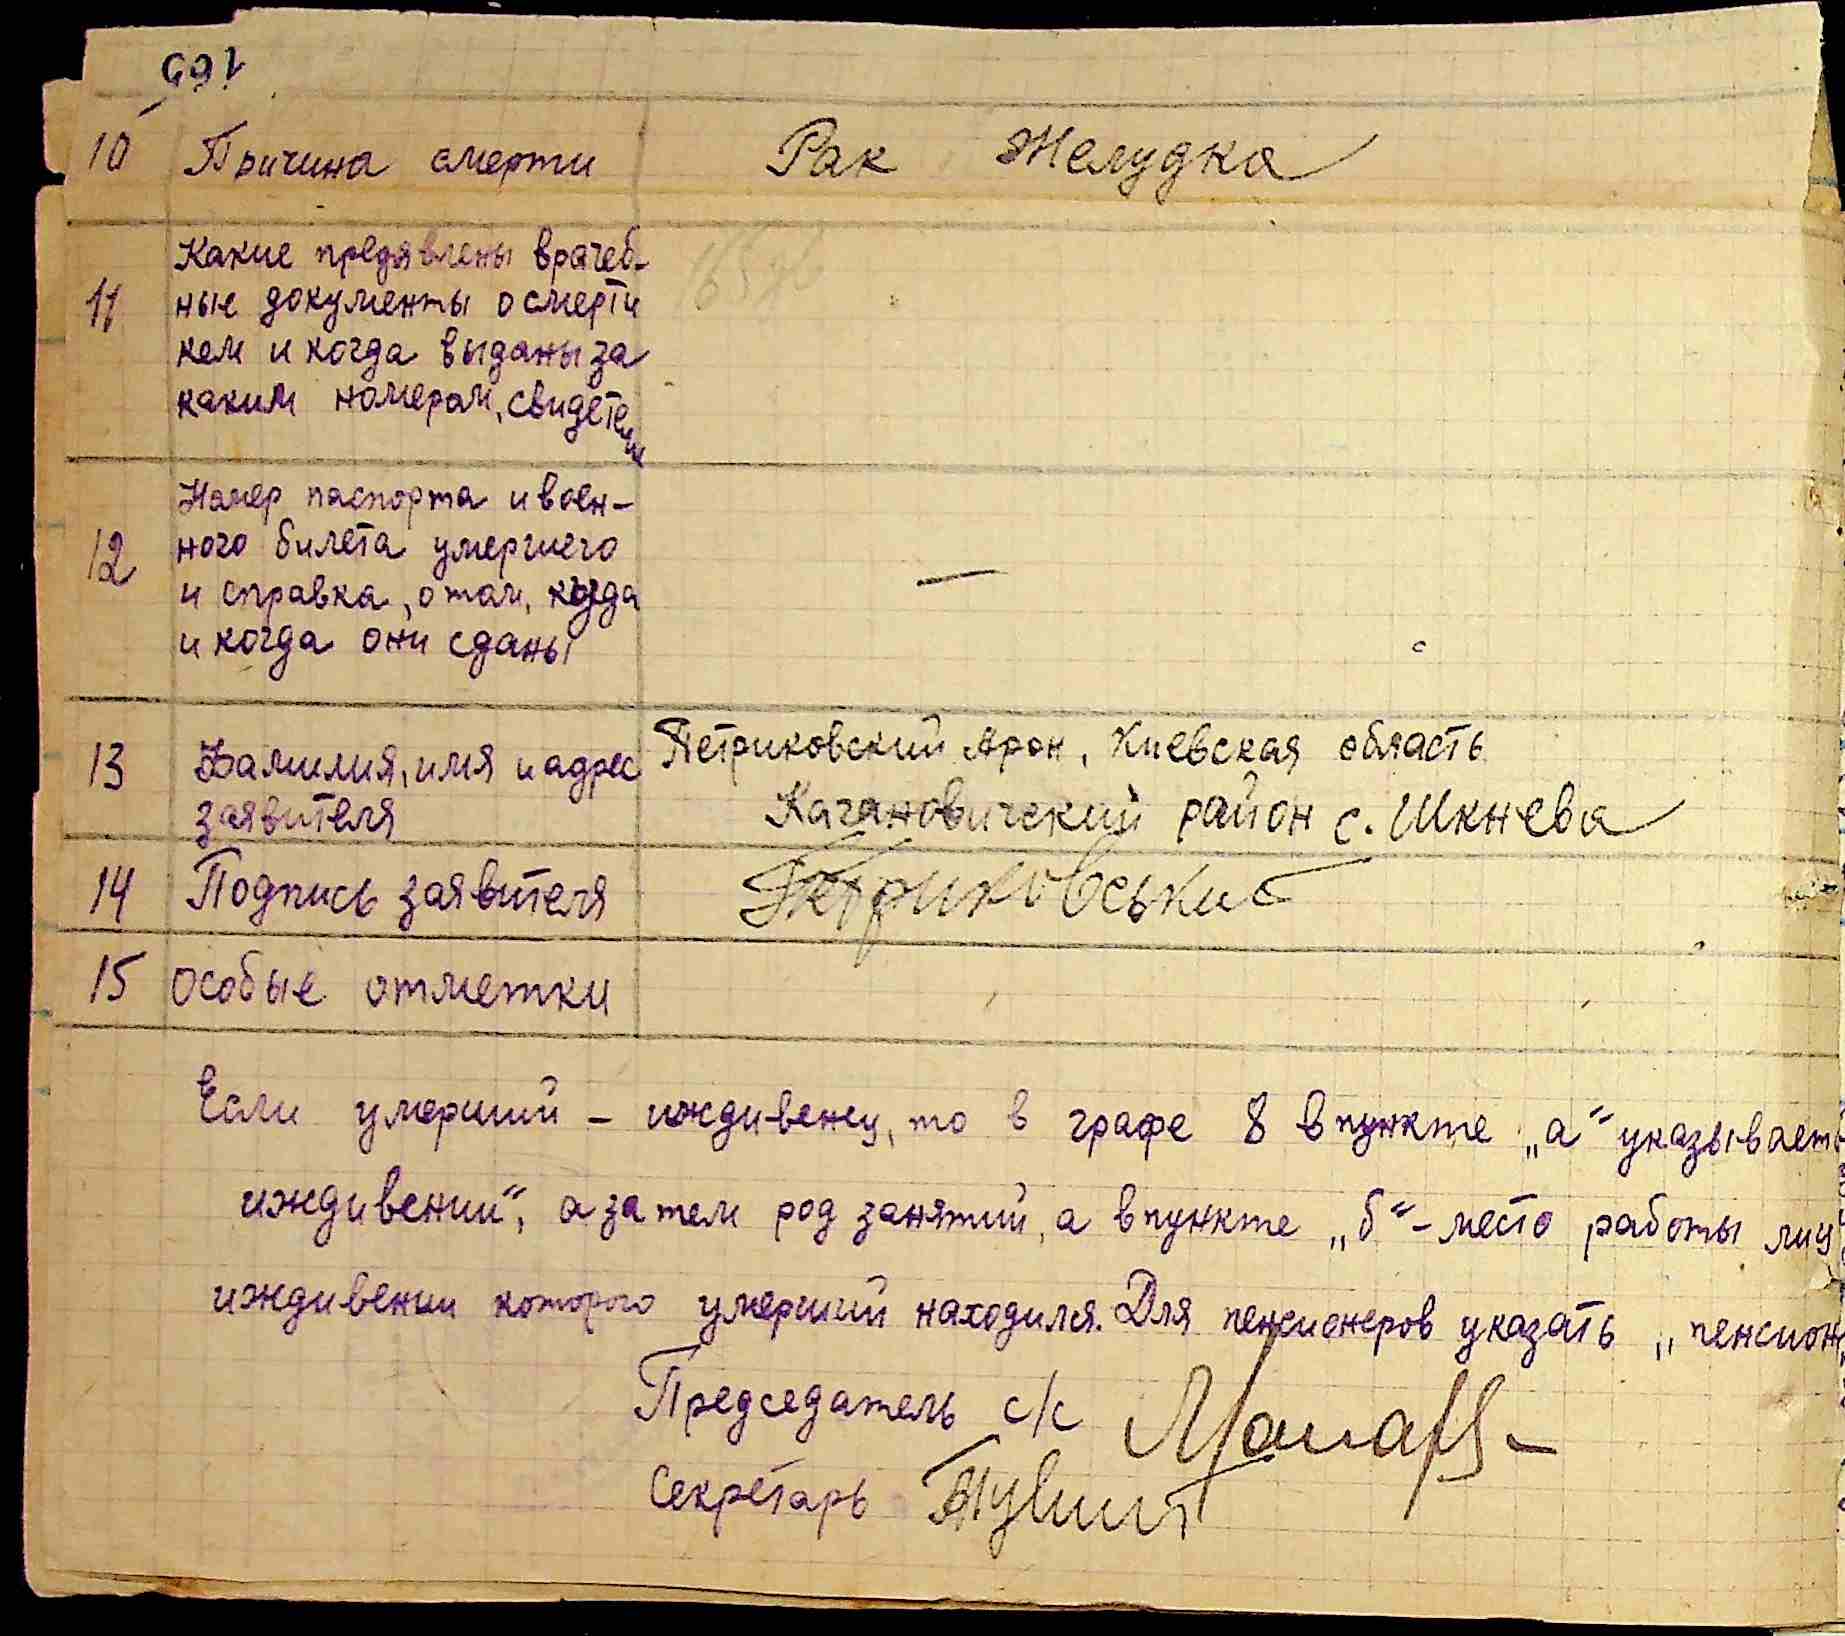 10 Причина смерти Рак Желудка
11 Какие предявлены врачеб-
ные документы о смерти
кем и когда выданы за
каким номером, свидетели
12 Номер паспорта и воен-
ного билета умершего
и справка, о том, когда
и когда они сданы
13 Фамилия, имя и адрес Петриковский Арон, Киевская область
заявителя Кагановический район с. Шкнева
14 Подпись заявителя Петриковський
15 Особые отметки
Если умерший – иждивенец, то в графе 8 в пункте „а“ указывает
иждивении“, а затем род занятий, а в пункте „б“ – место работы лиц
иждивении которого умерший находился. Для пенсионеров указать „пенсион
Председатель с/с
Секретарь